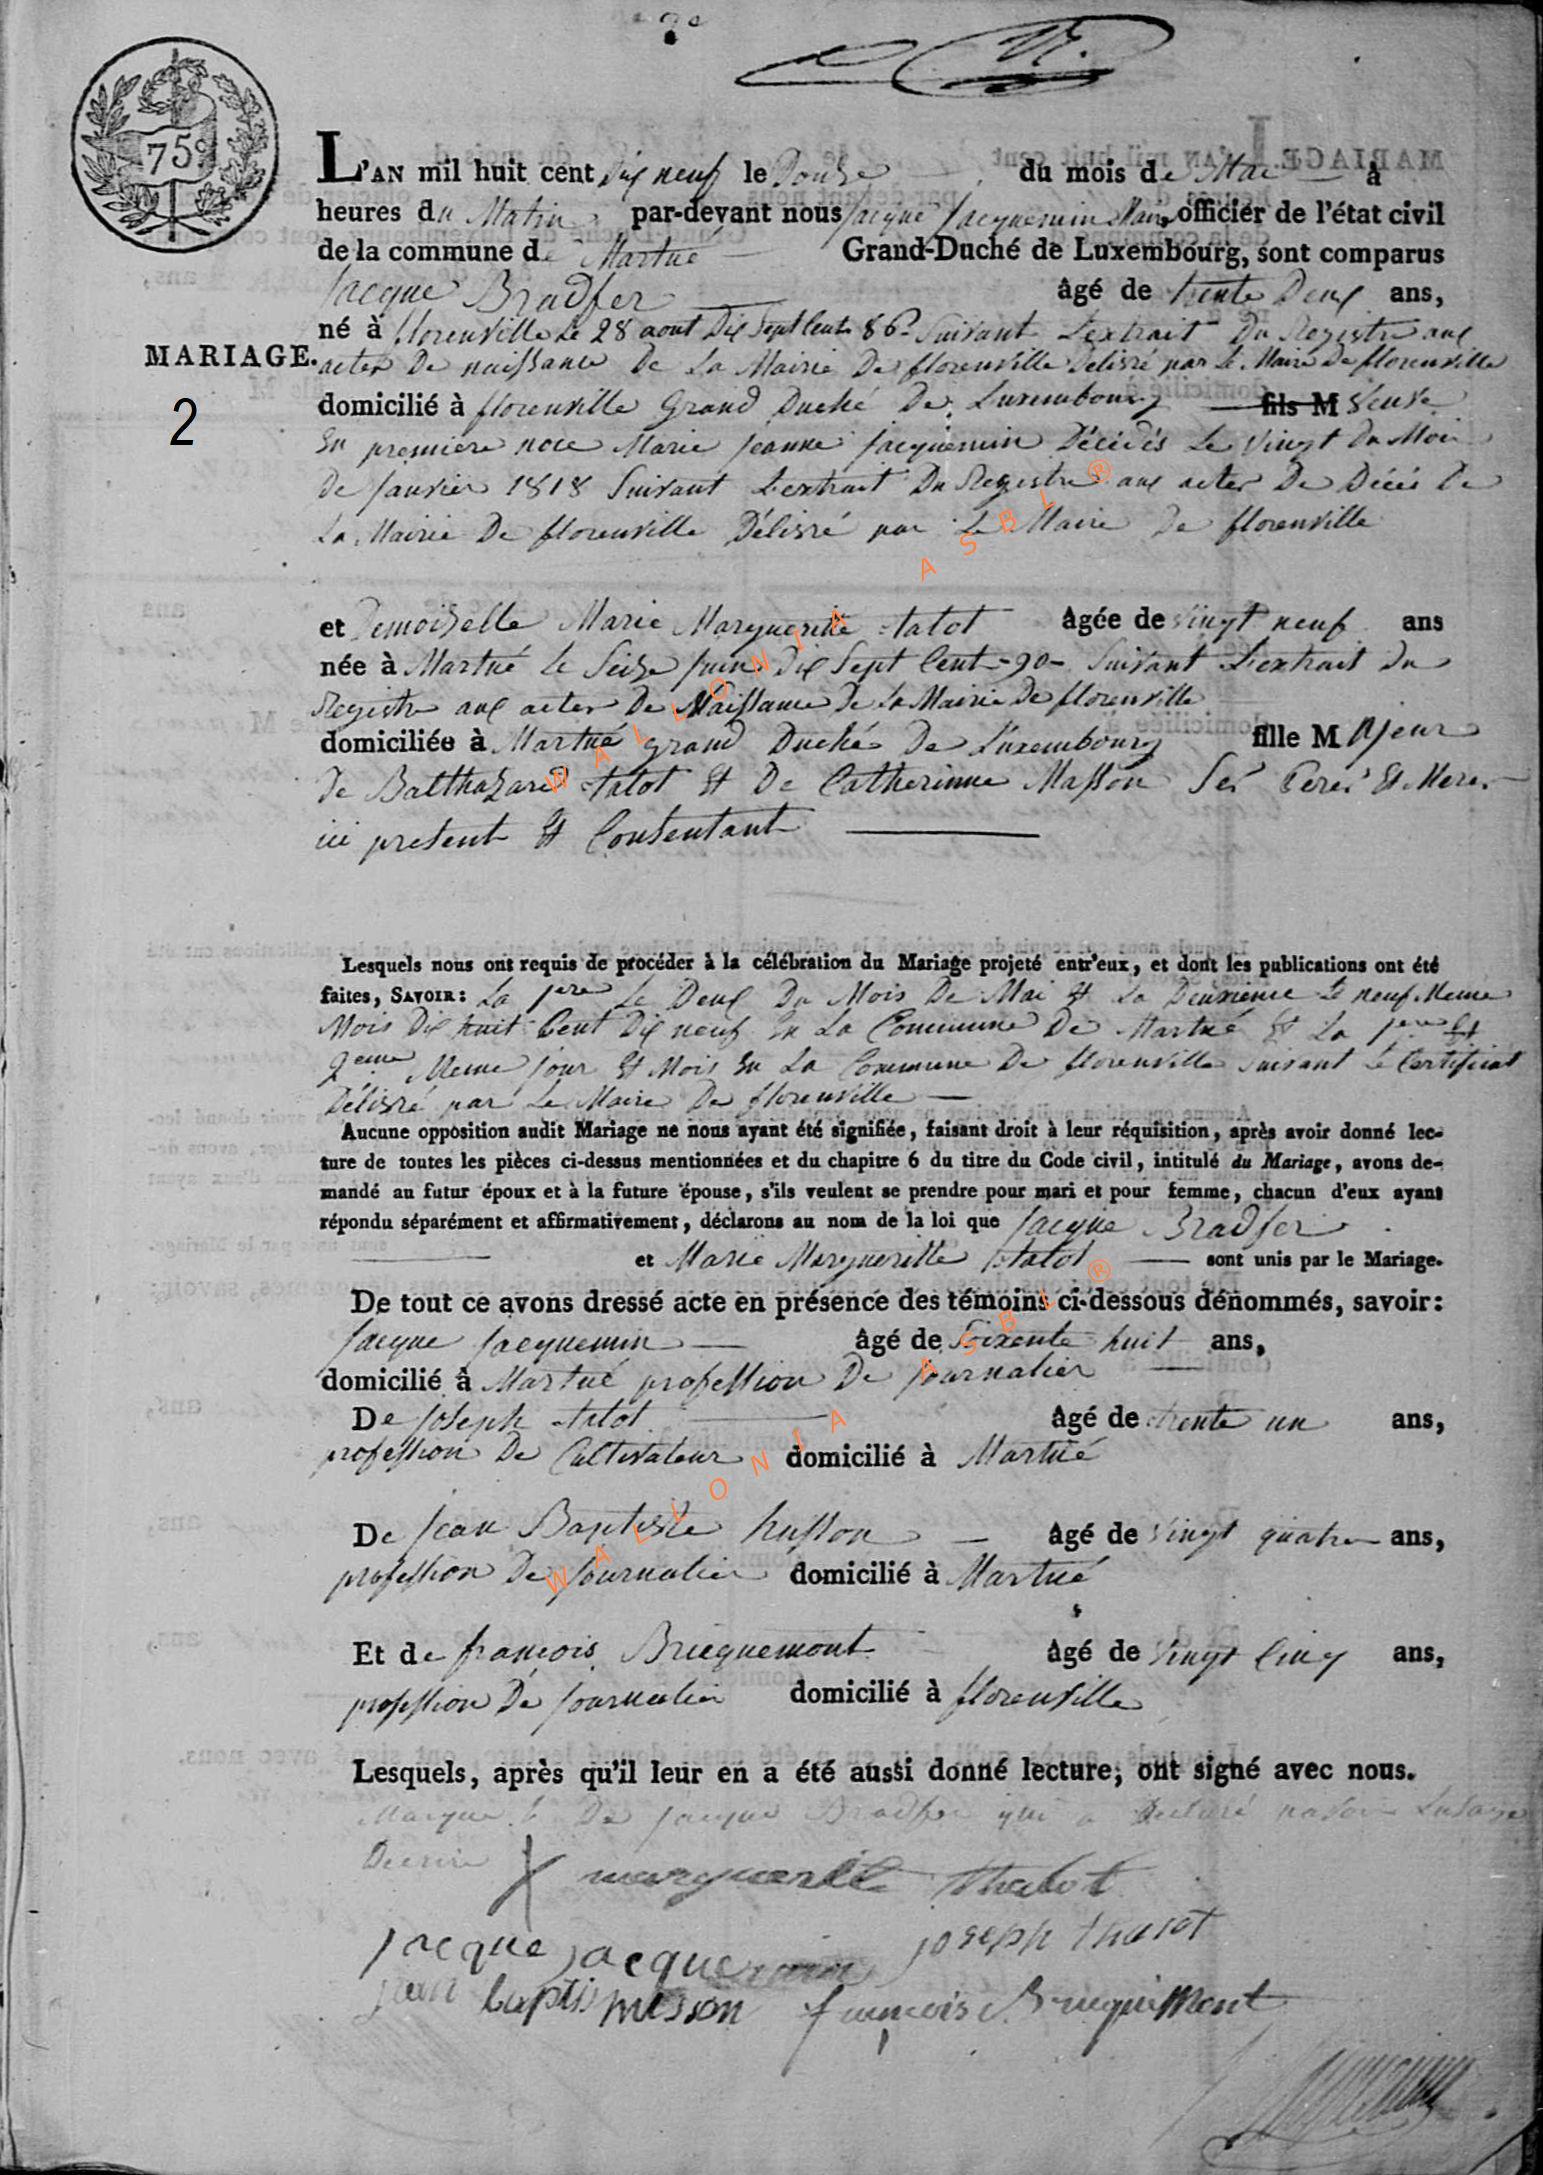 75c
L'AN mil huit cent Dix neuf le Douze du mois de Mai à
heures du Matin par-devant nous jacque jacquemin Maire officier de l'état civil
de la commune de Martué Grand-Duché de Luxembourg, sont comparus
jacque Bradfer âgé de trente Deux ans,
né à florenville le 28 aout Dix Sept Cent 86 Suivant L'extrait Du Registre aux
MARIAGE. actes De naissance De La Mairie De florenville Delivré par Le Maire De florenville
2
domicilié à florenville Grand Duché De Luxembourg fils M veuve
En premiere noce Marie jeanne jacquemin Décédés Le vingt Du Mois
De janvier 1818 Suivant L'extrait Du Registre aux actes De Décés De
La Mairie De florenville Délivré par Le Maire De florenville
et Demoiselle Marie Marguerite tatot âgée de vingt neuf ans
née à Martué le Seize juin Dix Sept Cent 90 Suivant L'extrait Du
Registre aux actes De Naissance De La Mairie De florenville
domiciliée à Martué grand Duché De Luxembourg fille M ajeur
De Balthazard tatot Et De Catherinne Masson Ses Peres Et Meres
ici present Et Consentant
Lesquels nous ont requis de procéder à la célébration du Mariage projeté entr'eux, et dont les publications ont été
faites, SAVOIR: La 1ere Le Deux Du Mois De Mai Et La Deuxieme Le neuf Meme
Mois Dix huit Cent Dix neuf En La Commune De Martué Et La 1ere Et
2eme Meme jour Et Mois En La Commune De florenville suivant Le Certificat
Délivré par Le Maire De florenville
Aucune opposition audit Mariage ne nous ayant été signifiée, faisant droit à leur réquisition, après avoir donné lec-
ture de toutes les pièces ci-dessus mentionnées et du chapitre 6 du titre du Code civil, intitulé du Mariage, avons de-
mandé au futur époux et à la future épouse, s'ils veulent se prendre pour mari et pour femme, chacun d'eux ayant
répondu séparément et affirmativement, déclarons au nom de la loi que jacque Bradfer
et Marie Marguerille tatot sont unis par le Mariage.
De tout ce avons dressé acte en présence des témoins ci-dessous dénommés, savoir:
jacque jacquemin âgé de Soixente huit ans,
domicilié à Martué profession De journalier
De joseph tatot âgé de trente un ans,
profession De Cultivateur domicilié à Martué
De jean Baptiste husson âgé de vingt quatre ans,
profession De journalier domicilié à Martué
Et de françois Bricquemont âgé de vingt Cinq ans,
profession De journalier domicilié à florenville
Lesquels, après qu'il leur en a été aussi donné lecture, ont signé avec nous.
Marque De jacque Bradfer qui a Declaré navoir Lusage
Decrire X marguerite thatot
jacque jacquemin joseph thatot
jean baptis husson françois Bricquemont
WALLONIA ASBL ®
WALLONIA ASBL ®